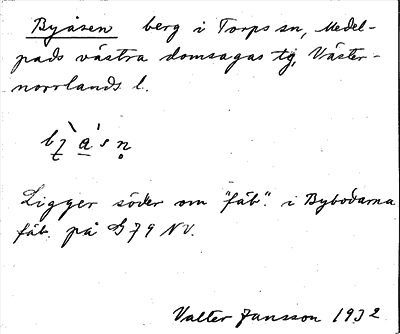 Byåsen berg i Torps sn, Medel-
pads västra domsagas tg, Väster-
norrlands l.
Ligger söder om "fäb". i Bybodarna
fäb. på G 79 NV.
Valter Jansson 1932